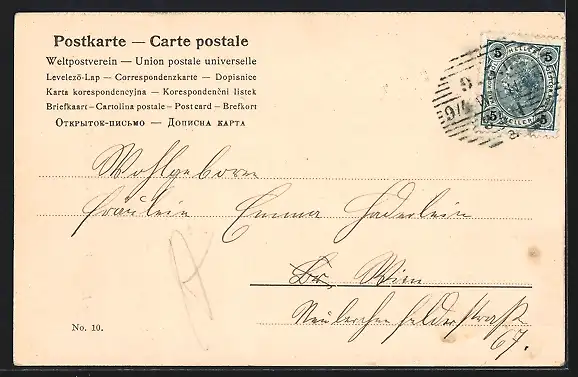 Postkarte — Carte postale
Weltpostverein — Union postale universelle
Levelező-Lap — Correspondenzkarte — Dopisnice
Karta korespondencyjna — Korespondenční listek
Briefkaart – Cartolina postale – Postcard – Brefkort
Открыток-письмо — Дописна карта
5 HELLER 5
5 HELLER 5
Wohlgeboren
Fräulein Emma Haderlein
Wien
Neulerchenfelderstraße
67.
No. 10.